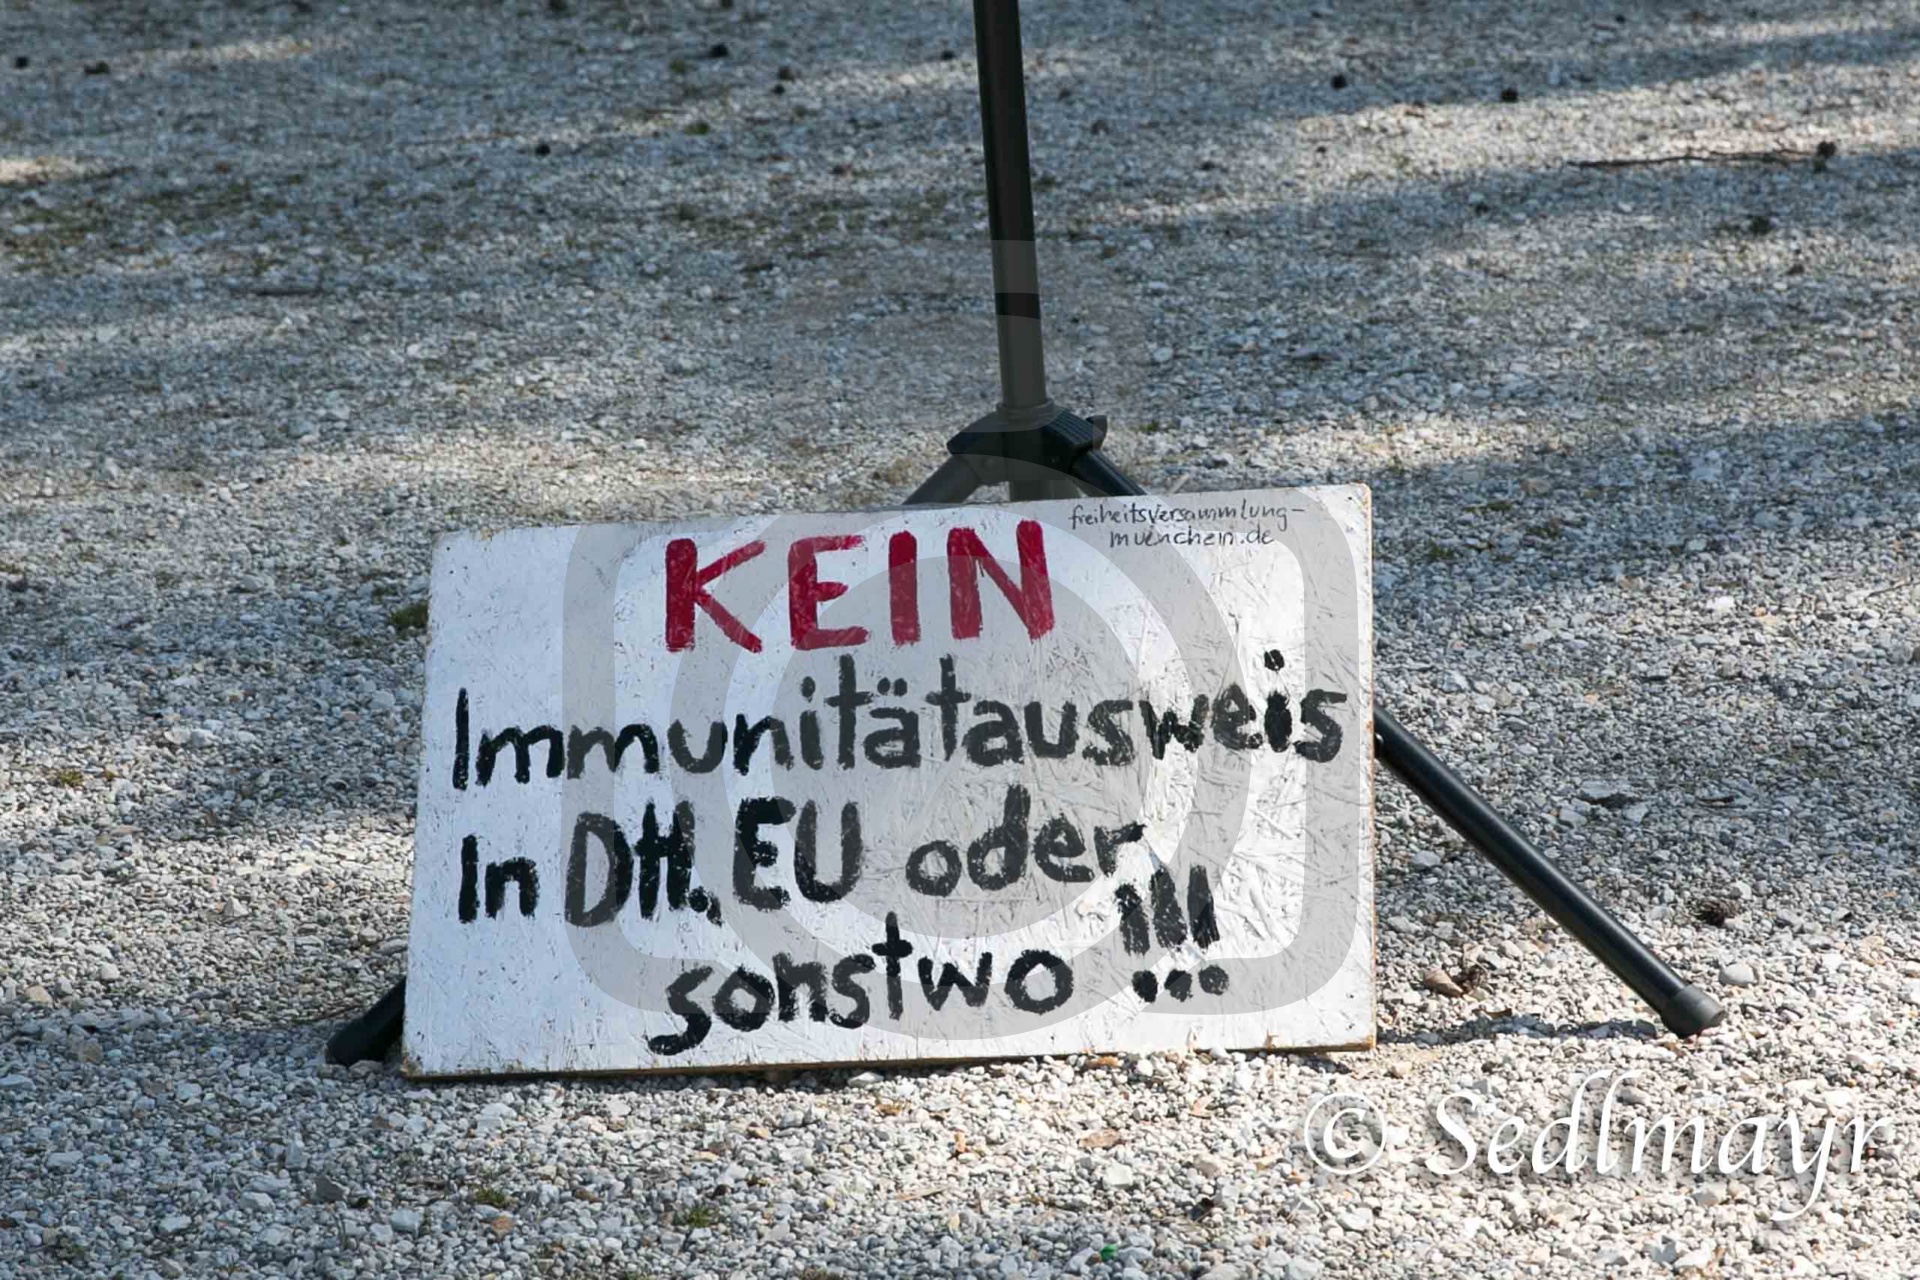 freiheitsversammlung-
muenchen.de
KEIN
Immunitätausweis
In Dtl., EU oder
sonstwo !!!
© Sedlmayr